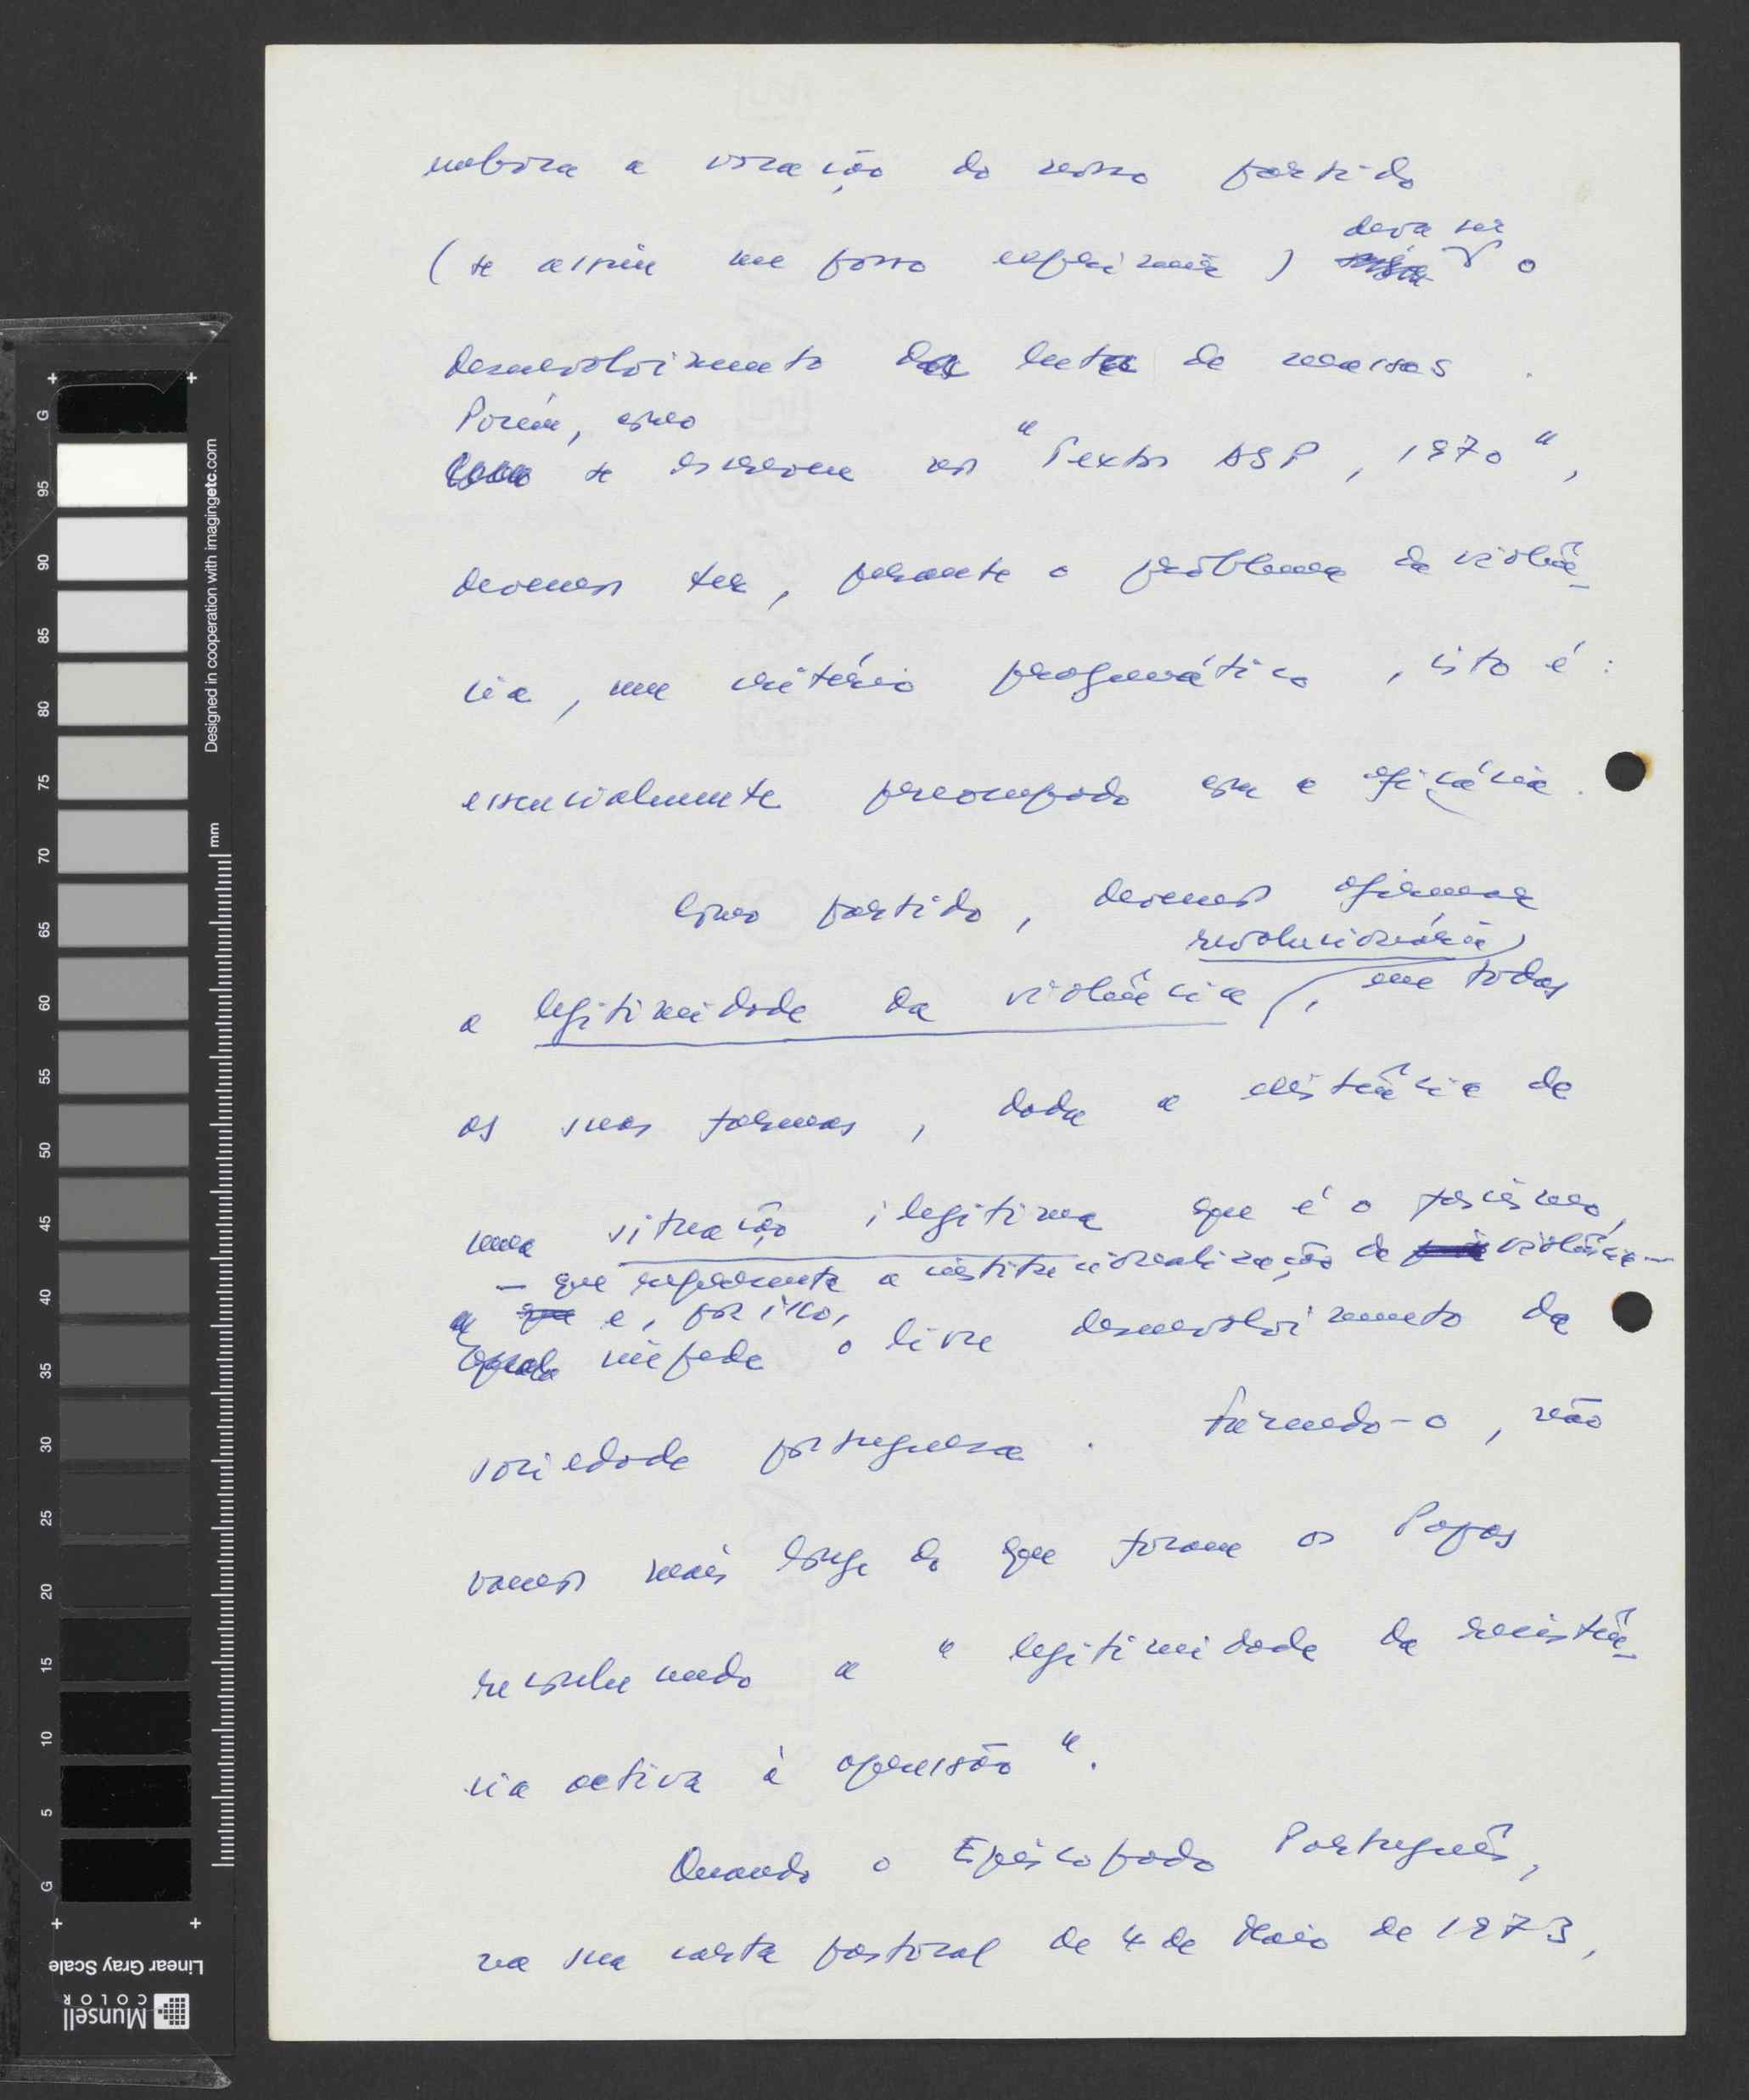 embora a vocação do nosso partido
deva ser
(se assim me posso exprimir) o
desenvolvimento da luta de massas.
Porém, como
se escreveu nos "Textos ASP, 1970",
devemos ter, perante o problema da violên-
cia, um critério pragmático, isto é:
essencialmente preocupado com a eficácia.
Como partido, devemos afirmar
revolucionária
a legitimidade da violência, em todas
as suas formas, dada a existência de
uma situação ilegítima que é o fascismo,
– que representa a institucionalização da violência –
e, por isso,
impede o livre desenvolvimento da
sociedade portuguesa. Fazendo-o, não
vamos mais longe do que foram os Papas
reconhecendo a "legitimidade da resistên-
cia activa à opressão".
Quando o Episcopado Português,
na sua carta pastoral de 4 de Maio de 1973,
Designed in cooperation with imagingetc.com
mm
G 95 90 85 80 75 70 65 60 55 50 45 40 35 30 25 20 15 10 5 G
Linear Gray Scale
Munsell
COLOR